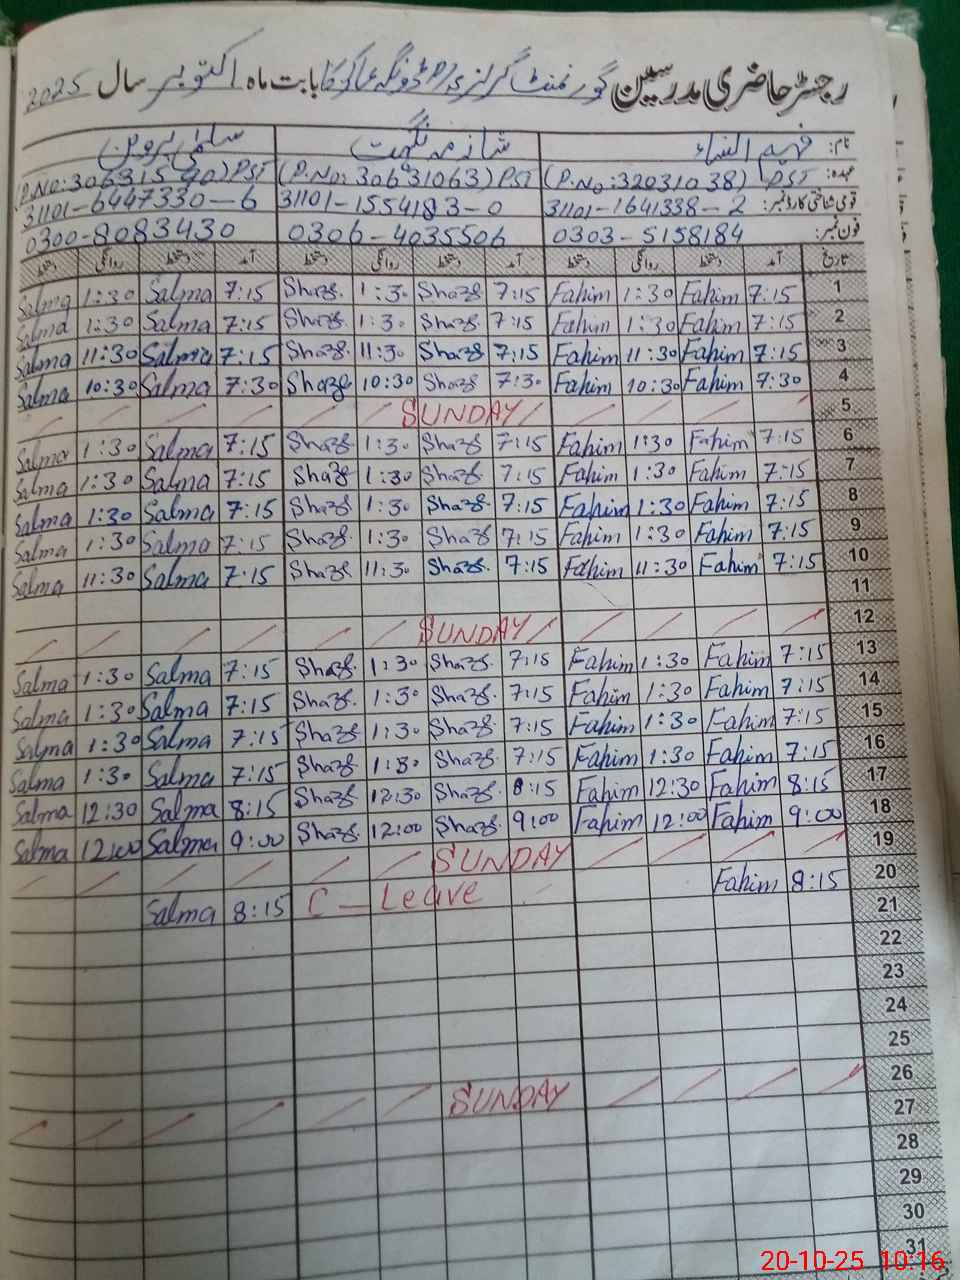 رجسٹر حاضری مدرسین گورنمنٹ گرلز بابت ماہ اکتوبر سال 2025
نام: فہیم النساء شازیہ نگہت سلمیٰ پروین
عہدہ: (P.No:32031038) PST (P.No:30631063) PST (P.No:30631540) PST
قومی شناختی کارڈ نمبر: 31101-1641338-2 31101-1554183-0 31101-6447330-6
فون نمبر: 0303-5158184 0306-4035506 0300-8083430
تاریخ آمد دستخط روانگی دستخط آمد دستخط روانگی دستخط آمد دستخط روانگی دستخط
Salma 1:30 Salma 7:15 Shaz 1:30 Shaz 7:15 Fahim 1:30 Fahim 7:15 1
Salma 1:30 Salma 7:15 Shaz 1:30 Shaz 7:15 Fahim 1:30 Fahim 7:15 2
Salma 11:30 Salma 7:15 Shaz 11:30 Shaz 7:15 Fahim 11:30 Fahim 7:15 3
Salma 10:30 Salma 7:30 Shaz 10:30 Shaz 7:30 Fahim 10:30 Fahim 7:30 4
SUNDAY 5
Salma 1:30 Salma 7:15 Shaz 1:30 Shaz 7:15 Fahim 1:30 Fahim 7:15 6
Salma 1:30 Salma 7:15 Shaz 1:30 Shaz 7:15 Fahim 1:30 Fahim 7:15 7
Salma 1:30 Salma 7:15 Shaz 1:30 Shaz 7:15 Fahim 1:30 Fahim 7:15 8
Salma 1:30 Salma 7:15 Shaz 1:30 Shaz 7:15 Fahim 1:30 Fahim 7:15 9
Salma 11:30 Salma 7:15 Shaz 11:30 Shaz 7:15 Fahim 11:30 Fahim 7:15 10
11
SUNDAY 12
Salma 1:30 Salma 7:15 Shaz 1:30 Shaz 7:15 Fahim 1:30 Fahim 7:15 13
Salma 1:30 Salma 7:15 Shaz 1:30 Shaz 7:15 Fahim 1:30 Fahim 7:15 14
Salma 1:30 Salma 7:15 Shaz 1:30 Shaz 7:15 Fahim 1:30 Fahim 7:15 15
Salma 1:30 Salma 7:15 Shaz 1:30 Shaz 7:15 Fahim 1:30 Fahim 7:15 16
Salma 12:30 Salma 8:15 Shaz 12:30 Shaz 8:15 Fahim 12:30 Fahim 8:15 17
Salma 12:00 Salma 9:00 Shaz 12:00 Shaz 9:00 Fahim 12:00 Fahim 9:00 18
SUNDAY 19
Salma 8:15 C - Leave Fahim 8:15 20
21
22
23
24
25
SUNDAY 26
27
28
29
30
31
20-10-25 10:16